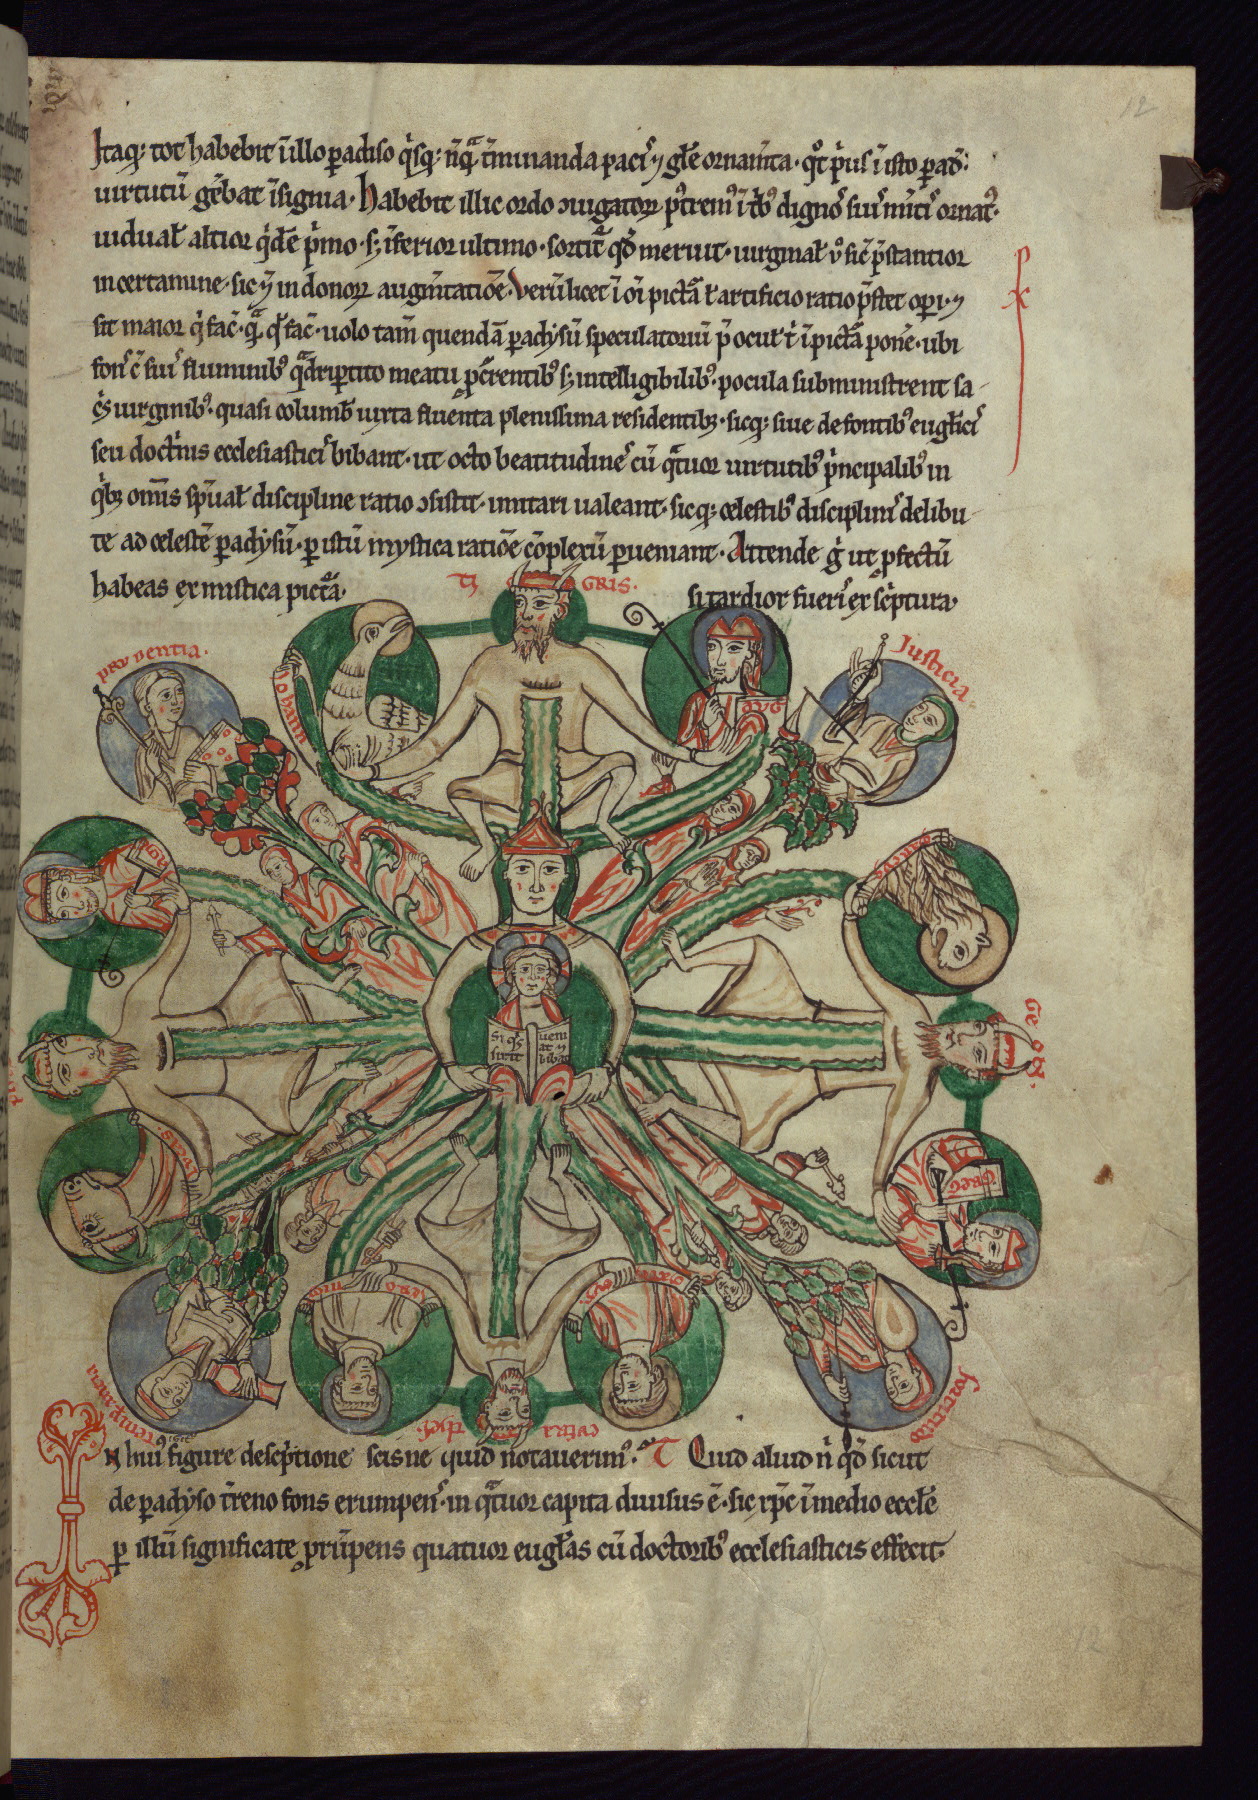 Itaq; tot habebit ĩ illo paradiso q'sq; nũqᵃ t̃minanda pacis ⁊ gl̃e ornam̃ta · q̊t p'us ĩ isto parad:
uirtutũ ger̃bat ĩsignia · Habebit illic ordo ↄiugatoꝝ p̊trem⁹ ĩ trib⁹ digno s' sui m̃itis ornat⁹·
uidual̃ altior q'dẽ p'mo · sꝫ ĩferior ultimo · sortitᵃ qđ meruit · uirginal̃ ů sic̃ p̃stantior
in certamine · sic ⁊ in donoꝝ augm̃tatiõe · Verũ licet ĩ oĩ pictᵃ ł artificio ratio p̃stet oꝑi · ⁊
sit maior q' fac̃ · qᵃ qđ fac̃ · uolo tam̃ quendã paradysũ speculatoriũ p̃ ocul̃ t' ĩ pictᵃ ponẽ · ubi
fons c̃ suis fluminib⁹ qᵃdriꝑtito meatu ꝓcur̃rentib⁹ sꝫ intelligibilib⁹ · pocula subministrent sa-
c's uirginib⁹ · quasi columb̃ iuxta fluenta plenissima residentibꝫ · sicq; siue de fontib⁹ eugl̃icis
seu doct'nis ecclesiasticis bibant · ut octo beatitudines cũ qᵃtuor uirtutib⁹ p'ncipalib⁹ in
q'bꝫ om̃is sp̃ual̃ discipline ratio ↄsistit · imitari ualeant · sicq; celestib⁹ disciplinis delibu-
te ad celestẽ paradysũ · ꝑ istũ mystica ratiõe cõplexũ ꝑueniant · Attende g̊ ut ꝑfectũ
habeas ex mistica pictᵃ· si tardior fueris ex sc'ptura·
TI GRIS·
prudentia·
Iusticia
Iohann
AVG
GEON·
GREG
Si qs sitit
ueniat ⁊ bibat
fortitudo
temperantia
In hui⁹ figure desc'ptione scisne quid notauerim⁹· T Quid aliud ñ qđ sicut
de paradyso t̃reno fons erumpens · in qᵃtuor capita diuisus ẽ · sic xp̃c ĩ medio eccl̃e
ꝑ illũ significate ꝓrũpens quatuor eugl̃as cũ doctorib⁹ ecclesiasticis effecit·